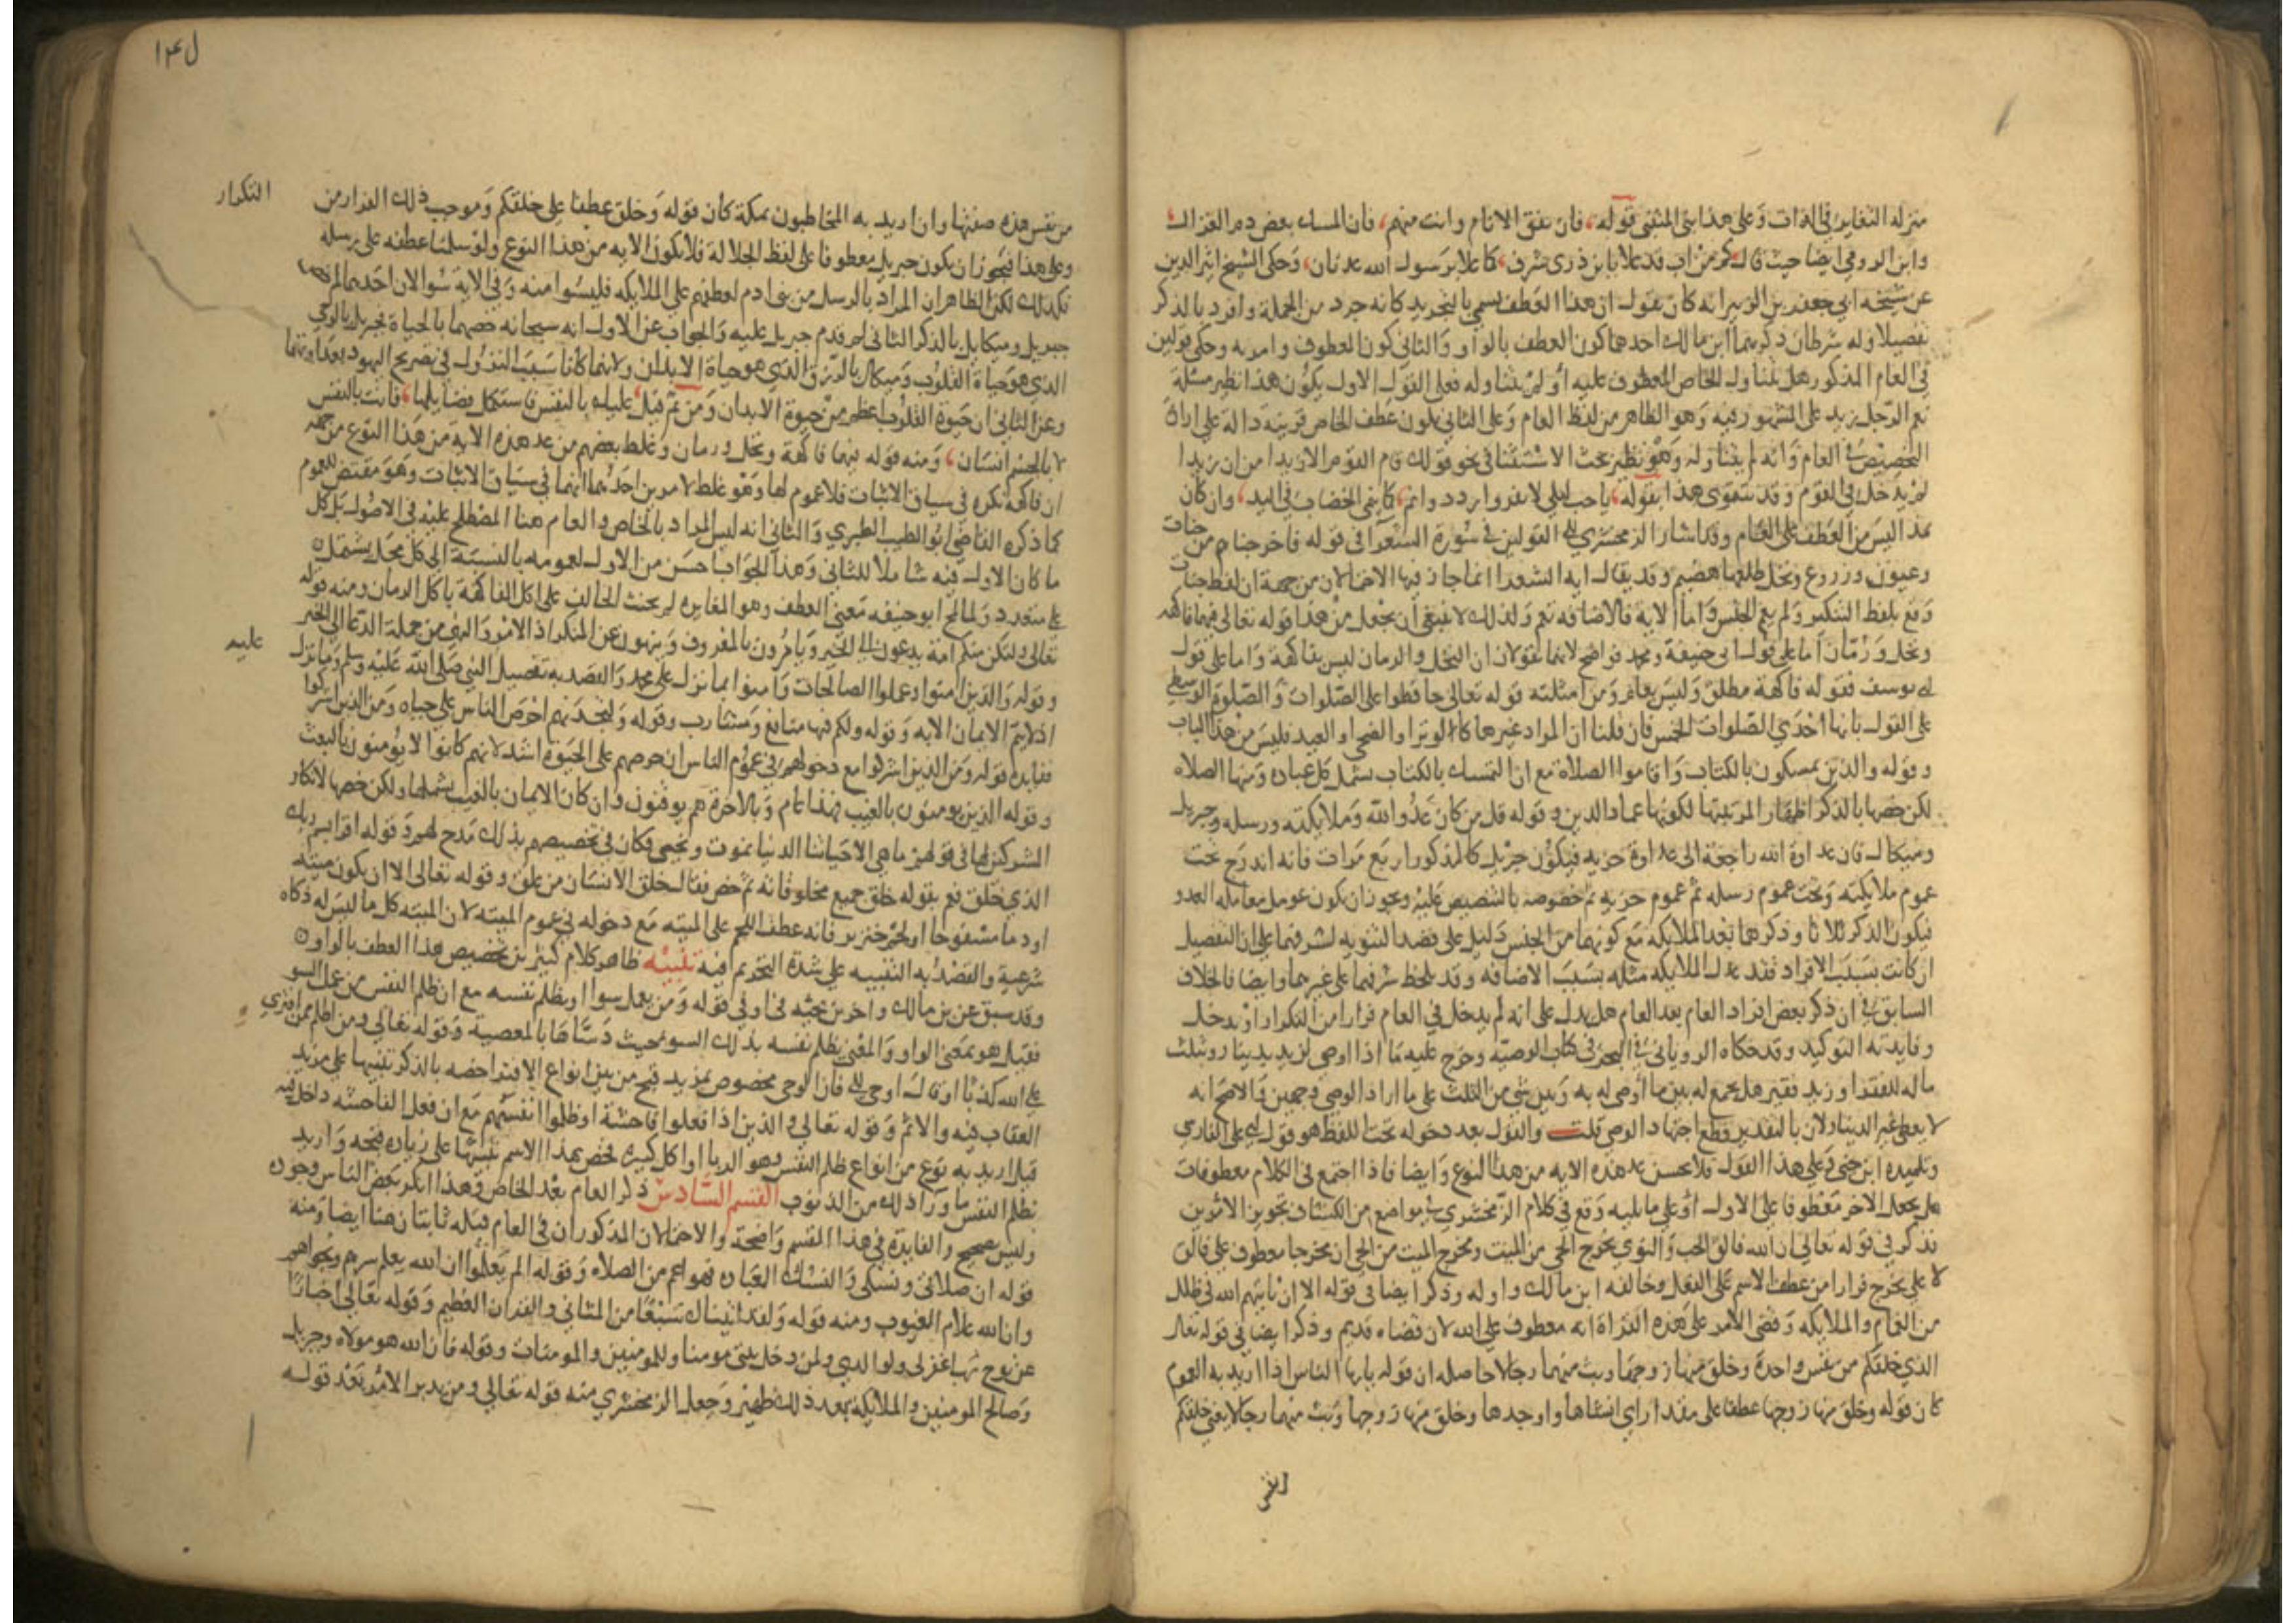 منزلة التغاير في الذات وعلى هذا بنى المتنبي قوله فان تفق الانام وانت منهم فان المسك بعض دم الغزال
وابن الرومي ايضا حيث قال كم من اب قد علا بابن ذرى شرف كما علا برسول الله عدنان وحكى الشيخ اثير الدين
عن شيخه ابي جعفر بن الزبير انه كان يقول ان هذا العطف يسمى بالتجريد كانه جرد من الجملة وافرد بالذكر
تفصيلا وله شرطان ذكرهما ابن مالك احدهما كون العطف بالواو والثاني كون المعطوف وامر به وحكى قولين
في العام المذكور هل يتناول الخاص المعطوف عليه او لم يتناوله فعلى القول الاول يكون هذا نظير مسئلة
نعم الرجل زيد على المشهور فيه وهو الظاهر من لفظ العام وعلى الثاني يكون عطف الخاص قرينة دالة على ارادة
التخصيص في العام وانه لم يتناوله وهو نظير بحث الاستثنا في نحو قولك قام القوم الا زيدا من ان زيدا
لم يدخل في القوم وقد يتقوى هذا بقوله يا حب ليلى لا تغير وازدد وانم كما ينمى الخضاب في اليد وان كان
هذا ليس من العطف على العام وقد اشار الزمخشري الى القولين في سورة الشعرا في قوله فاخرجناهم من جنات
وعيون وزروع ونخل طلعها هضيم وقد يقال اية الشعرا انما جاز فيها الاحتمالان من جهة ان لفظ جنات
وقع بلفظ التنكير ولم يعم الجنس واما الاية فالاضافة تعم ولذلك لا ينبغي ان يجعل من هذا قوله تعالى فيهما فاكهة
ونخل ورمان اما على قول ابي حنيفة ومحمد فواضح لانهما يقولان ان النخل والرمان ليس بفاكهة واما على قول
ابي يوسف فقوله فاكهة مطلق وليس بعام ومن امثلته قوله تعالى حافظوا على الصلوات والصلوة الوسطى
على القول بانها احدى الصلوات الخمس فان قلنا ان المراد غيرها كالوتر او الضحى او العيد فليس من هذا الباب
وقوله والذين يمسكون بالكتاب واقاموا الصلاة مع ان التمسك بالكتاب يشمل كل عبادة ومنها الصلاه
لكن خصها بالذكر اظهارا لمرتبتها لكونها عماد الدين وقوله قل من كان عدوا لله وملايكته ورسله وجبريل
وميكال فان عداوة الله راجعة الى عداوة حزبه فيكون جبريل كالمذكور اربع مرات فانه اندرج تحت
عموم ملايكته وتحت عموم رسله ثم عموم حزبه ثم خصوصه بالتنصيص عليه ويجوز ان يكون عومل معاملة العدو
فيكون الذكر ثلاثا وذكرهما بعد الملايكة مع كونهما من الجنس دليل على قصد التنويه لشرفهما على ان التفصيل
ان كانت بسبب الافراد فقد عدل الملايكه مثله بسبب الاضافه وقد يلحظ شرفهما على غيرهما وايضا فالخلاف
السابق في ان ذكر بعض افراد العام بعد العام هل يدل على انه لم يدخل في العام فرارا من التكرار او يدخل
وفايدته التوكيد وقد حكاه الروياني في البحر في كتاب الوصيه وخرج عليه ما اذا اوصى لزيد بدينار وبثلث
ماله للفقرا وزيد فقير هل يجمع له بين ما اوصي له به وبين شي من الثلث على ما اراد الوصي وجهين والاصح انه
لا يعطى غير الدينار لان بالتقدير قطع اجتهاد الوصي قلت والقول بعد دخوله تحت اللفظ هو قول ابي علي الفارسي
وتلميذه ابن جني وعلى هذا القول فلا يحسن عد هذه الاية من هذا النوع وايضا فاذا اجتمع في الكلام معطوفات
هل يجعل الاخر معطوفا على الاول او على ما يليه وقع في كلام الزمخشري في مواضع من الكشاف تجويز الامرين
فذكر في قوله تعالى ان الله فالق الحب والنوى يخرج الحي من الميت ومخرج الميت من الحي ان مخرجا معطوف على فالق
لا على يخرج فرارا من عطف الاسم على الفعل وخالفه ابن مالك واوله وذكر ايضا في قوله الا ان ياتيهم الله في ظلل
من الغمام والملايكة وقضي الامر على هذه القراة انه معطوف على الله لان قضاه قديم وذكر ايضا في قوله تعالى
الذي خلقكم من نفس واحدة وخلق منها زوجها وبث منهما رجالا حاصله ان قوله يايها الناس اذا اريد به العموم
كان قوله وخلق منها زوجها عطفا على مقدر اي انشاها واوجدها وخلق منها زوجها وبث منهما رجالا يعني خلقكم
من نفس هذه صفتها وان اريد به المخاطبون بمكة كان قوله وخلق عطفا على خلقكم وموجب ذلك الفرار من
التكرار
وعلى هذا فيجوز ان يكون جبريل معطوفا على لفظ الجلالة فلا يكون الايه من هذا النوع ولو سلمنا عطفه على رسله
فكذلك لكن الظاهر ان المراد بالرسل من بني ادم لعطفهم على الملايكه فليسوا منه وفي الاية سوالان احدهما لم خص
جبريل وميكايل بالذكر الثاني لم قدم جبريل عليه والجواب عن الاول انه سبحانه خصهما بالحياة فجبريل بالوحي
الذي هو حياة القلوب وميكال بالرزق الذي هو حياة الابدان ولانهما كانا سبب النزول في تصريح اليهود بعداوتهما
وعن الثاني ان حيوة القلوب اعظم من حيوة الابدان ومن ثم قيل عليك بالنفس فاستكمل فضايلها فانت بالنفس
لا بالجسم انسان ومنه قوله فيهما فاكهة ونخل ورمان وغلط بعضهم من عد هذه الاية من هذا النوع من جهة
ان فاكهة نكره في سياق الاثبات فلا عموم لها وهو غلط لامرين احدهما انها في سياق الاثبات وهو مقتض للعموم
كما ذكره القاضي ابو الطيب الطبري والثاني انه ليس المراد بالخاص والعام هنا المصطلح عليه في الاصول بل كل
ما كان الاول فيه شاملا للثاني وهذا الجواب احسن من الاول لعمومه بالنسبة الى كل مجمل يشتمل
على متعدد ولما لمح ابو حنيفه معنى العطف وهو المغايره لم يحنث الحالف على اكل الفاكهة باكل الرمان ومنه قوله
تعالى ولتكن منكم امة يدعون الى الخير ويامرون بالمعروف وينهون عن المنكر اذ الامر والنهي من جملة الدعا الى الخير
وقوله والذين امنوا وعملوا الصالحات وامنوا بما نزل على محمد والقصد به تفضيل النبي صلى الله عليه وسلم وما نزل
عليه
اذ لا يتم الايمان الا به وقوله ولكم فيها منافع ومشارب وقوله ولتجدنهم احرص الناس على حياه ومن الذين اشركوا
ففايدة قوله ومن الذين اشركوا مع دخولهم في عموم الناس ان حرصهم على الحيوة اشد لانهم كانوا لا يومنون بالبعث
وقوله الذين يومنون بالغيب فهذا عام وبالاخرة هم يوقنون وان كان الايمان بالغيب يشملها ولكن خصها لانكار
المشركين لها في قولهم ما هي الا حياتنا الدنيا نموت ونحيى فكان في تخصيصهم بذلك مدح لهم وقوله اقرا باسم ربك
الذي خلق فعم بقوله خلق جميع مخلوقاته ثم خص فقال خلق الانسان من علق وقوله تعالى الا ان يكون ميتة
او دما مسفوحا او لحم خنزير فانه عطف اللحم على الميته مع دخوله في عموم الميته لان الميته كل ما ليس له ذكاه
شرعية والقصد به التنبيه على شدة التحريم فيه تنبيه ظاهر كلام كثيرين تخصيص هذا العطف بالواو
وقد سبق عن بن مالك واخرين مجيئه في او في قوله ومن يعمل سوا او يظلم نفسه مع ان ظلم النفس من عمل السو
فقيل هو بمعنى الواو والمعنى يظلم نفسه بذلك السو بحيث دساها بالمعصية وقوله تعالى ومن اظلم ممن افترى
على الله كذبا او قال اوحي الي فان الوحي مخصوص بمزيد قبح من بين انواع الافترا خصه بالذكر تنبيها على مزيد
العقاب فيه والاثم وقوله تعالى والذين اذا فعلوا فاحشة او ظلموا انفسهم مع ان فعل الفاحشه داخل فيه
قيل اريد به نوع من انواع ظلم النفس وهو الربا او كل كبيرة فخص بهذا الاسم تنبيها على زيادة قبحه واريد
بظلم النفس ما ورا ذلك من الذنوب القسم السادس ذكر العام بعد الخاص وهذا انكر بعض الناس وجوده
وليس بصحيح والفايدة في هذا القسم واضحة والاحتمالان المذكوران في العام قبله ثابتان هنا ايضا ومنه
قوله ان صلاتي ونسكي والنسك العبادة فهو اعم من الصلاة وقوله الم يعلموا ان الله يعلم سرهم ونجواهم
وان الله علام الغيوب ومنه قوله ولقد اتيناك سبعا من المثاني والقران العظيم وقوله تعالى اخبارا
عن نوح رب اغفر لي ولوالدي ولمن دخل بيتي مومنا وللمومنين والمومنات وقوله فان الله هو مولاه وجبريل
وصالح المومنين والملايكة بعد ذلك ظهير وجعل الزمخشري منه قوله تعالى ومن يدبر الامر بعد قوله